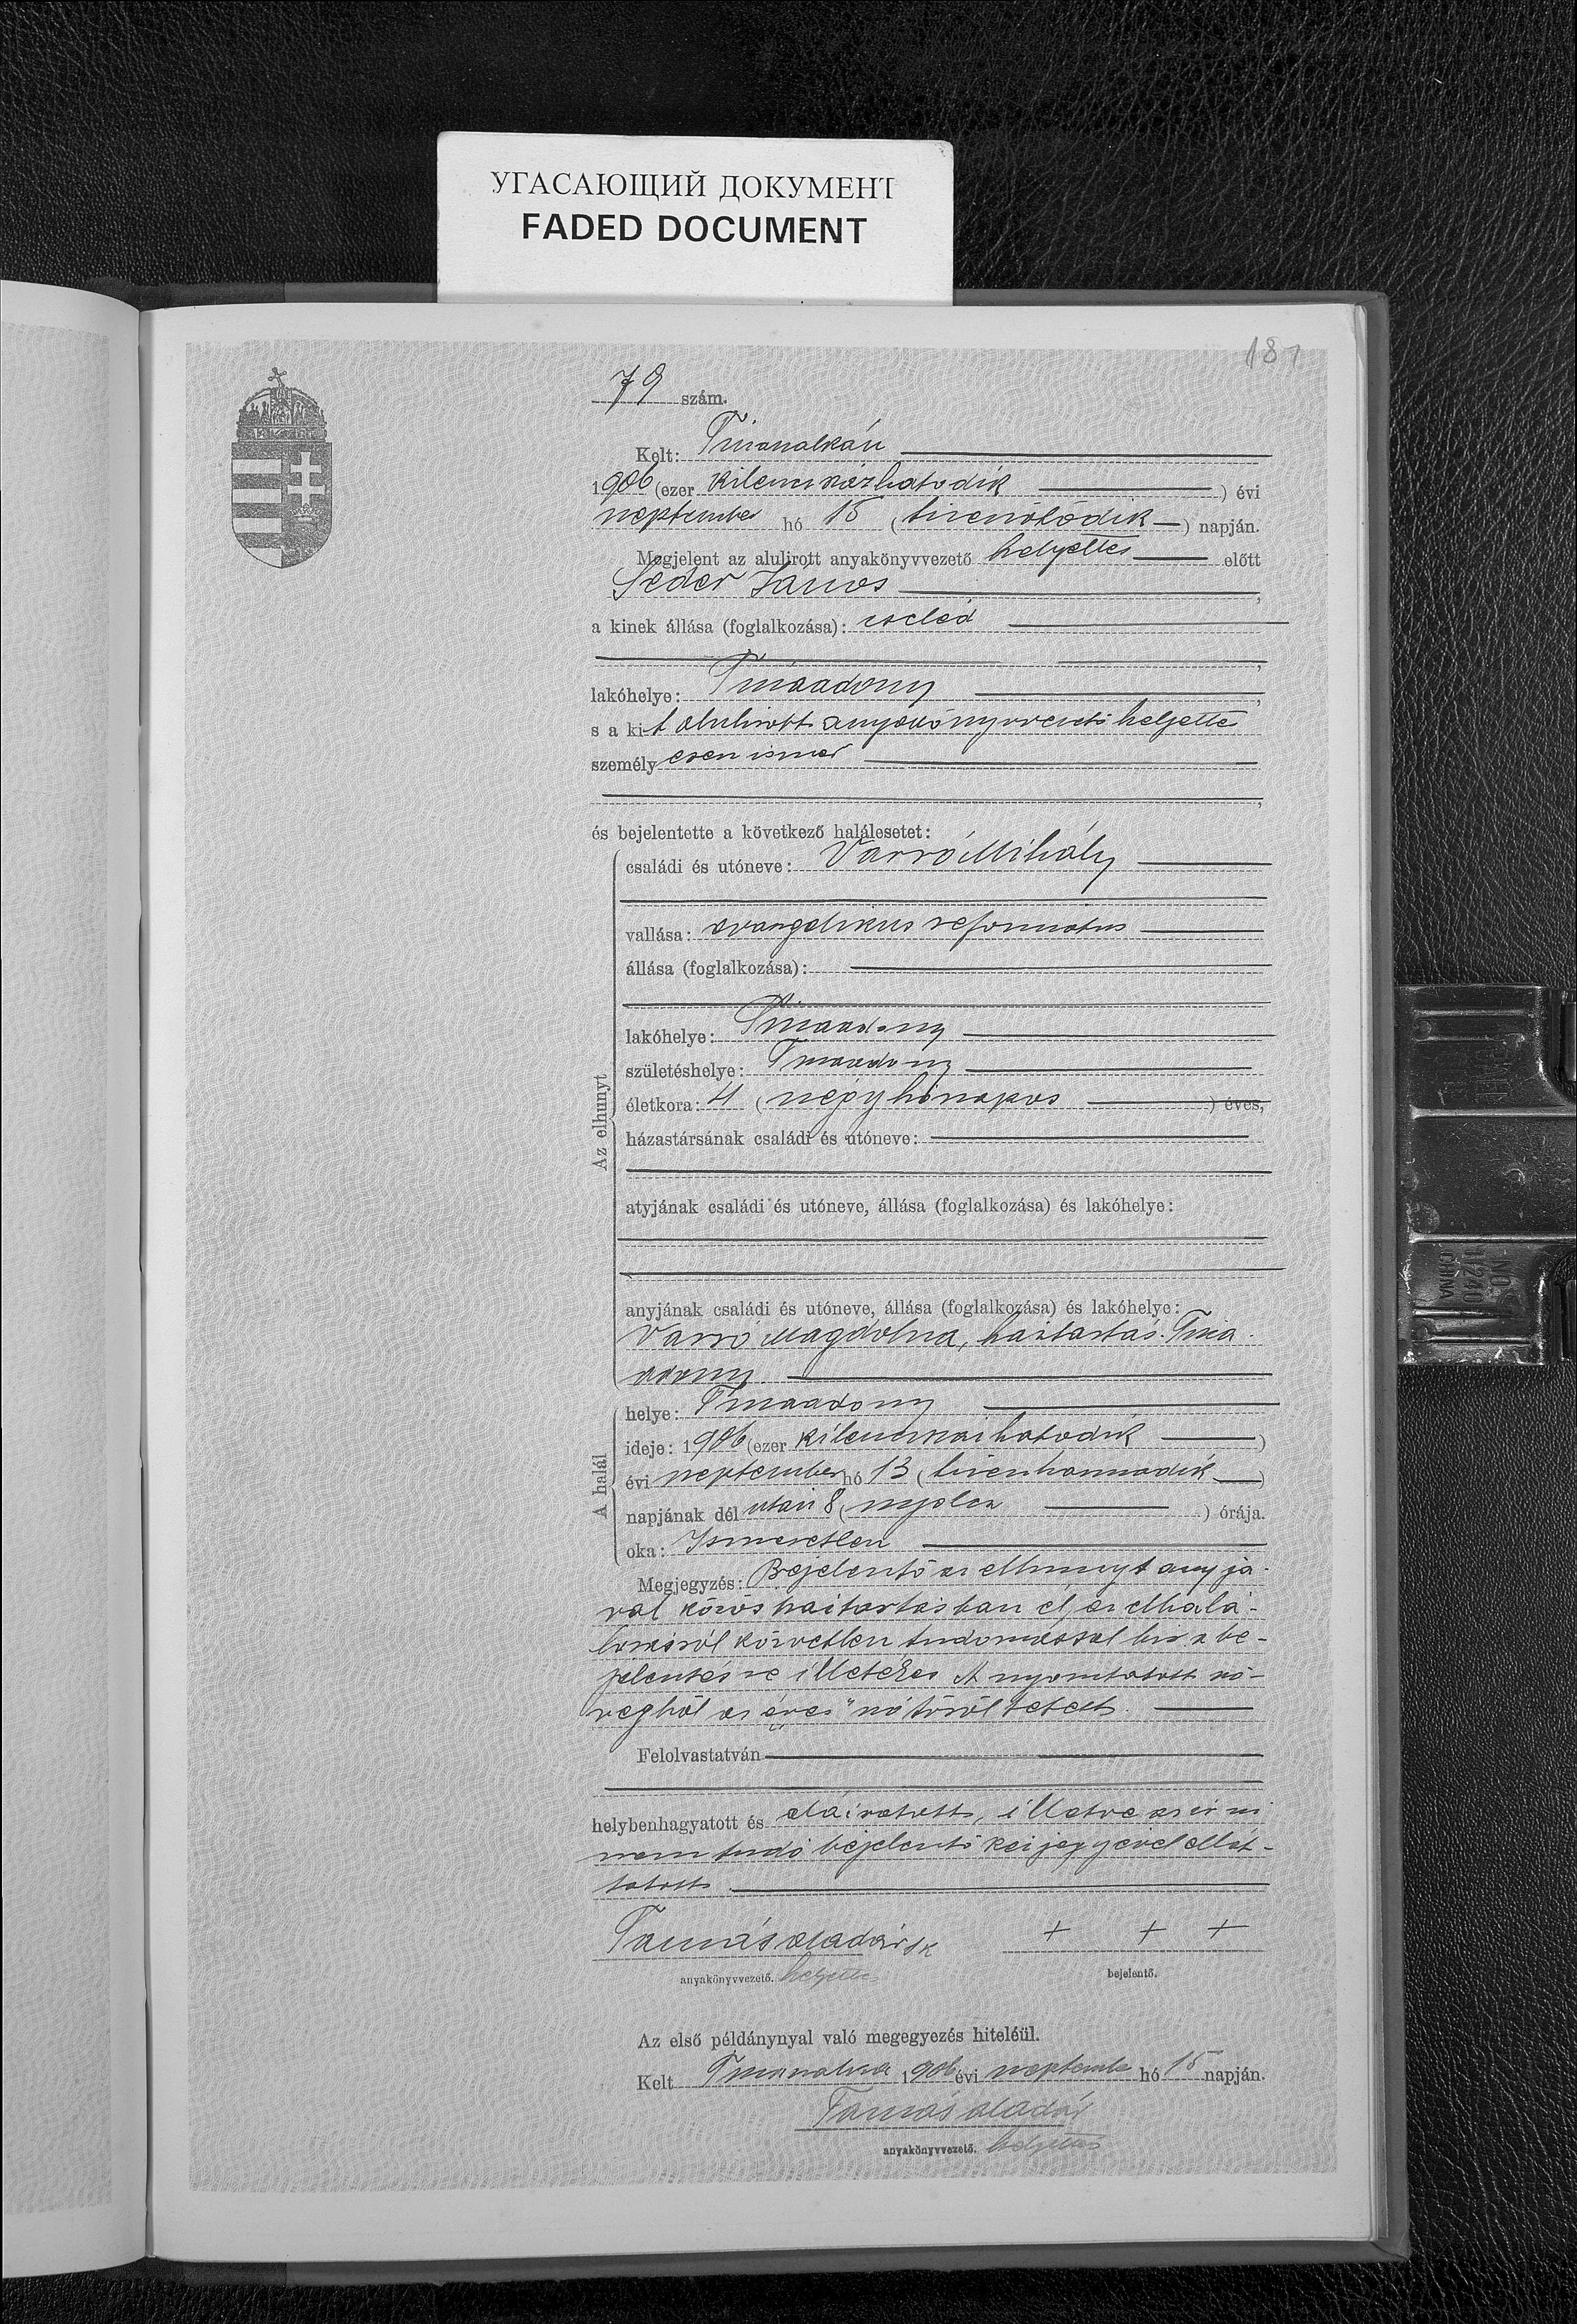 УГАСАЮЩИЙ ДОКУМЕНТ
FADED DOCUMENT
181
79 szám.
Kelt: Tiszasalkán
1906 (ezer kilenczszázhatodik) évi
szeptember hó 15 (tizenötödik) napján.
Megjelent az alulirott anyakönyvvezető helyettes előtt
Séder János,
a kinek állása (foglalkozása): cseléd
lakóhelye: Tiszaadony,
s a kit alulirott anyakönyvvezető helyette
személyesen ismer
és bejelentette a következő halálesetet:
Az elhunyt
családi és utóneve: Varró Mihály
vallása: evangelikus reformatus
állása (foglalkozása):
lakóhelye: Tiszaadony
születéshelye: Tiszaadony
életkora: 4 (négy hónapos) éves,
házastársának családi és utóneve:
atyjának családi és utóneve, állása (foglalkozása) és lakóhelye:
anyjának családi és utóneve, állása (foglalkozása) és lakóhelye:
Varró Magdolna, háztartás. Tisza-
adony
A halál
helye: Tiszaadony
ideje: 1906 (ezer kilenczszázhatodik)
évi szeptember hó 13 (tizenharmadik)
napjának dél után 8 (nyolcz) órája.
oka: Ismeretlen
Megjegyzés: Bejelentő az elhunyt anyjá-
val közös háztartásban él, az elhalá-
lozásról közvetlen tudomással bir a be-
jelentésre illetékes A nyomtatott szö-
vegből az "éves" szó töröltetett.
Felolvastatván
helybenhagyatott és aláiratott, illetve az irni
nem tudó bejelentő kézjegyével ellát-
tatott
Tamás Aladár sk + + +
anyakönyvvezető. helyettes bejelentő.
Az első példánynyal való megegyezés hiteléül.
Kelt 1906 évi szeptember hó 15 napján.
Tamás Aladár
anyakönyvvezető. helyettes
NO.
11240
CHINA